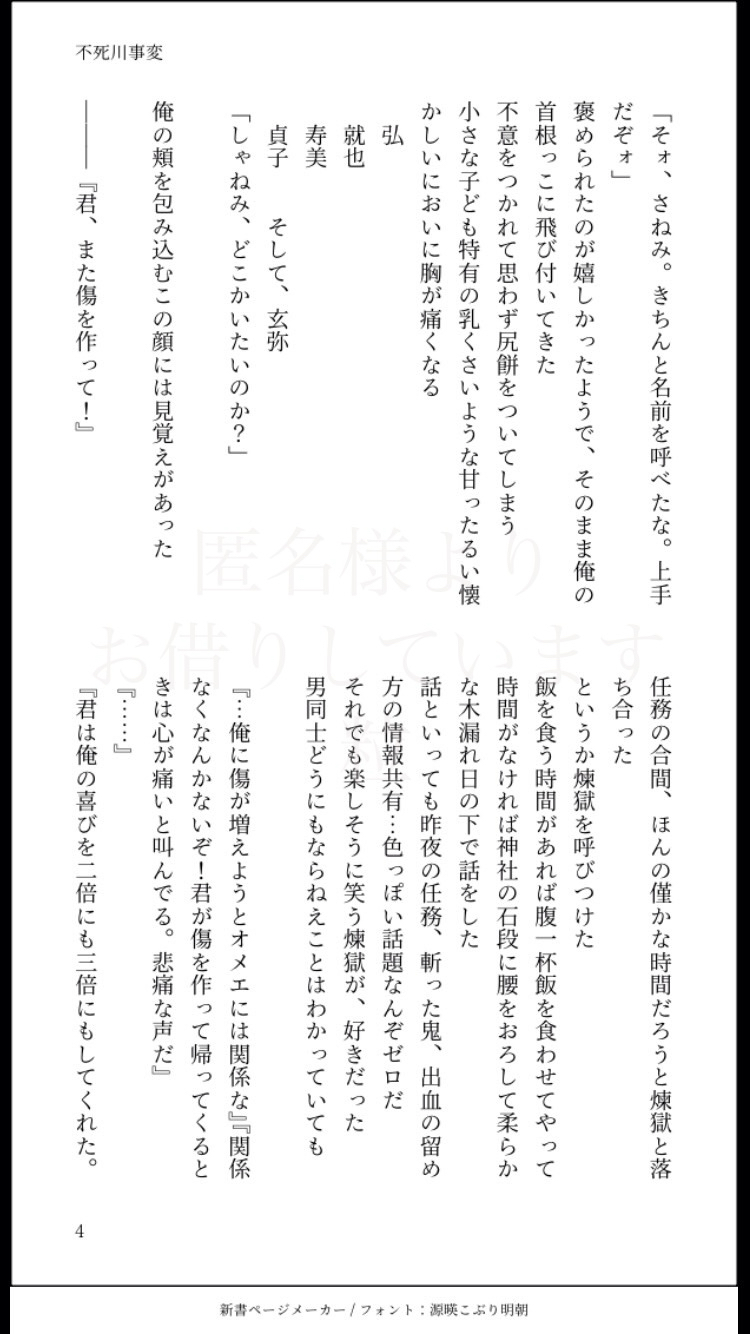 不死川事変
「そォ、さねみ。きちんと名前を呼べたな。上手
だぞォ」
褒められたのが嬉しかったようで、そのまま俺の
首根っこに飛び付いてきた
不意をつかれて思わず尻餅をついてしまう
小さな子ども特有の乳くさいような甘ったるい懐
かしいにおいに胸が痛くなる
弘
就也
寿美
貞子　　そして、玄弥
「しゃねみ、どこかいたいのか？」
俺の頬を包み込むこの顔には見覚えがあった
―――『君、また傷を作って！』
任務の合間、ほんの僅かな時間だろうと煉獄と落
ち合った
というか煉獄を呼びつけた
飯を食う時間があれば腹一杯飯を食わせてやって
時間がなければ神社の石段に腰をおろして柔らか
な木漏れ日の下で話をした
話といっても昨夜の任務、斬った鬼、出血の留め
方の情報共有…色っぽい話題なんぞゼロだ
それでも楽しそうに笑う煉獄が、好きだった
男同士どうにもならねえことはわかっていても
『…俺に傷が増えようとオメエには関係な』『関係
なくなんかないぞ！君が傷を作って帰ってくると
きは心が痛いと叫んでる。悲痛な声だ』
『……』
『君は俺の喜びを二倍にも三倍にもしてくれた。
匿名様より
お借りしています
4
新書ページメーカー / フォント：源暎こぶり明朝